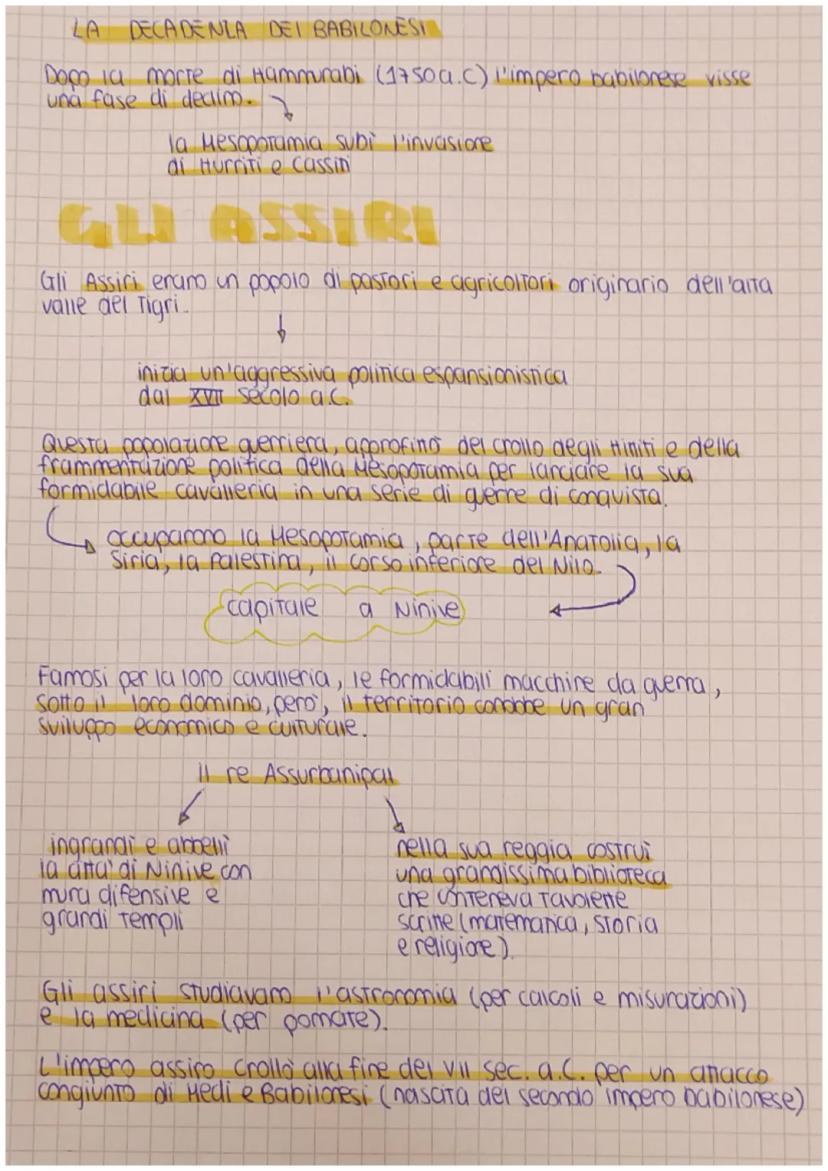 LA DECADENZA DEI BABILONESI
Dopo la morte di Hammurabi (1750 a.C) l'impero babilonese visse
una fase di declino.
la Mesopotamia subì l'invasione
di Hurriti e Cassiti
GLI ASSIRI
Gli Assiri erano un popolo di pastori e agricoltori originario dell'alta
valle del Tigri.
inizia un'aggressiva politica espansionistica
dal XVII secolo a.C.
Questa popolazione guerriera, approfittò del crollo degli Hittiti e della
frammentazione politica della Mesopotamia per lanciare la sua
formidabile cavalleria in una serie di guerre di conquista.
occuparono la Mesopotamia, parte dell'Anatolia, la
Siria, la Palestina, il corso inferiore del Nilo.
capitale a Ninive
Famosi per la loro cavalleria, le formidabili macchine da guerra,
sotto il loro dominio, però, il territorio conobbe un gran
sviluppo economico e culturale.
Il re Assurbanipal
ingrandì e abbellì
la città di Ninive con
mura difensive e
grandi templi
nella sua reggia costruì
una grandissima biblioteca
che conteneva tavolette
scritte (matematica, storia
e religione).
Gli assiri studiavano l'astronomia (per calcoli e misurazioni)
e la medicina (per pomate).
L'impero assiro crollò alla fine del VII sec. a.C. per un attacco
congiunto di Medi e Babilonesi (nascita del secondo impero babilonese)